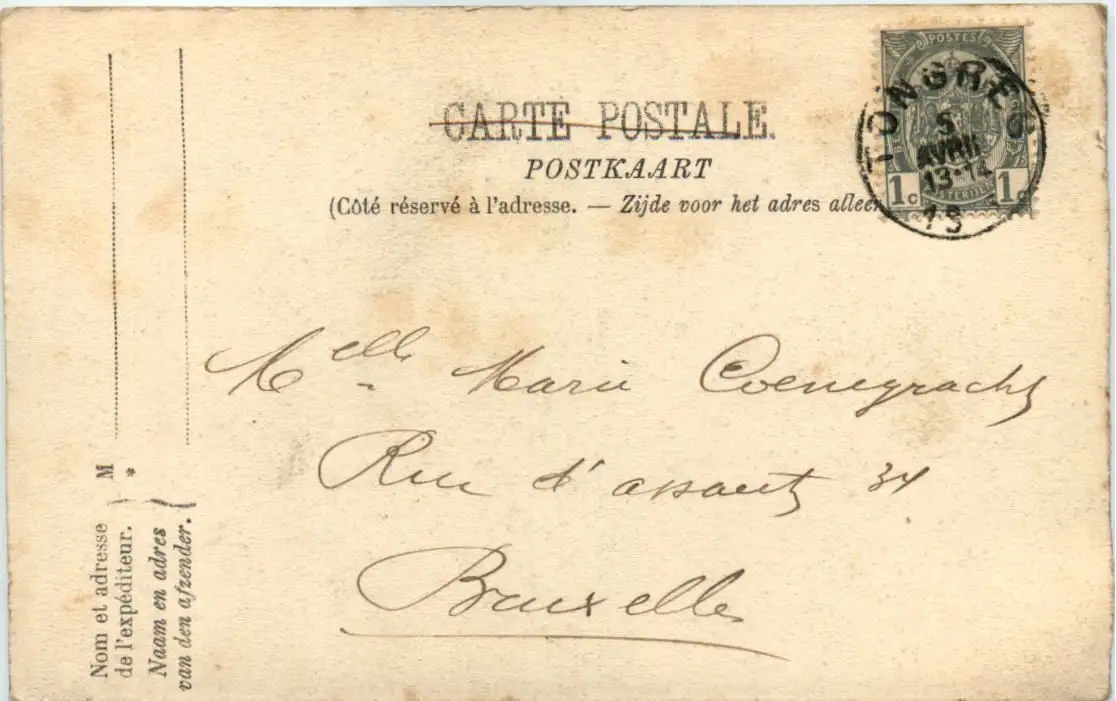 CARTE POSTALE.
POSTKAART
(Côté réservé à l'adresse. — Zijde voor het adres alleen
POSTES
1c 1c
TONGRES
5
AVRIL
13-14
Melle Marie Coenegrachts
Rue d'assaut 34
Bruxelles
M
*
Nom et adresse
de l'expéditeur.
Naam en adres
van den afzender.